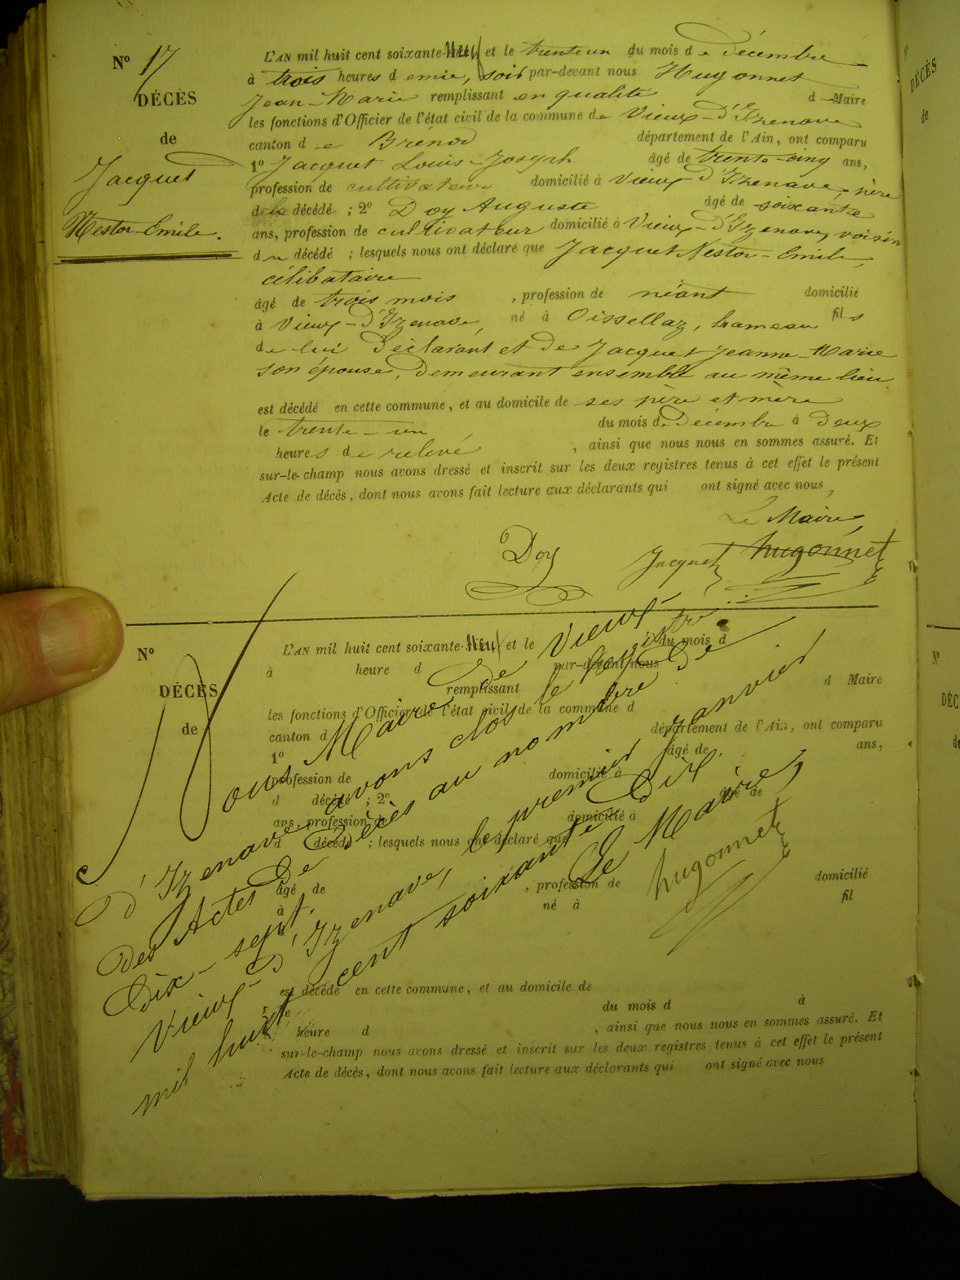 N° 17
DÉCÈS
de
Jacquet
Nestor-Emile.
L'AN mil huit cent soixante-Neuf et le trente un du mois de décembre
à trois heures demie, soir par-devant nous Hugonnet
Jean-Marie remplissant en qualité d Maire
les fonctions d'Officier de l'état civil de la commune de Vieux-d'Izenave
canton de Brénod département de l'Ain, ont comparu
1° Jacquet Louis-Joseph âgé de trente-cinq ans,
profession de cultivateur domicilié à Vieux-d'Izenave, père
du décédé ; 2° Doy Auguste âgé de soixante
ans, profession de cultivateur domicilié à Vieux-d'Izenave, voisin
du décédé ; lesquels nous ont déclaré que Jacquet Nestor-Emile,
célibataire
âgé de trois mois , profession de néant domicilié
à Vieux-d'Izenave, né à Oissellaz, hameau fils
de lui déclarant et de Jacquet Jeanne-Marie
son épouse, demeurant ensemble au même lieu
est décédé en cette commune, et au domicile de ses père et mère
le trente-un du mois de Décembre à deux
heures de relevé , ainsi que nous nous en sommes assuré. Et
sur-le-champ nous avons dressé et inscrit sur les deux registres tenus à cet effet le présent
Acte de décès, dont nous avons fait lecture aux déclarants qui ont signé avec nous,
Le Maire,
Doy Jacquet hugonnet
N°
DÉCÈS
de
L'AN mil huit cent soixante-Neuf et le du mois d
à heure d par-devant nous
remplissant d Maire
les fonctions d'Officier de l'état civil de la commune d
canton d département de l'Ain, ont comparu
1° âgé de ans,
profession de domicilié à
d décédé ; 2° âgé de
ans, profession de domicilié à
d décédé ; lesquels nous ont déclaré que
âgé de , profession de domicilié
à né à fil
est décédé en cette commune, et au domicile de
le du mois d à
heure d , ainsi que nous nous en sommes assuré. Et
sur-le-champ nous avons dressé et inscrit sur les deux registres tenus à cet effet le présent
Acte de décès, dont nous avons fait lecture aux déclarants qui ont signé avec nous
Nous Maire de Vieux-
d'Izenave, avons clos le Registre
des Actes de Décès au nombre de
Dix-sept.
Vieux-d'Izenave, le premier Janvier
mil huit cent soixante Dix.
Le Maire,
hugonnet
N°
DÉCÈS
de
N°
DÉC
de